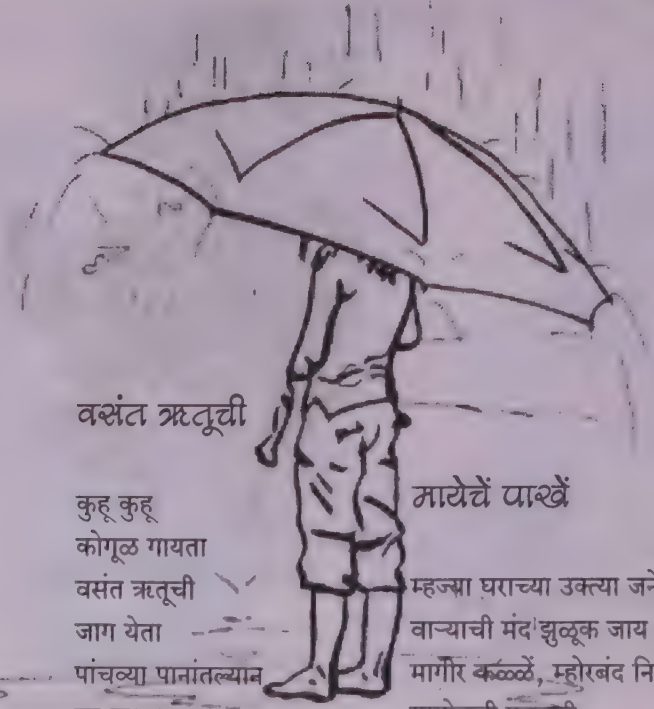 वसंत ऋतूची
कुहू कुहू
कोगूळ गायता
वसंत ऋतूची
जाग येता
पांचव्या पानांतल्यान
मायेचें पाखें
म्हज्या घराच्या उक्त्या
वाऱ्याची मंद झुळूक जाय
मागीर कळ्ळें, म्होरबंद